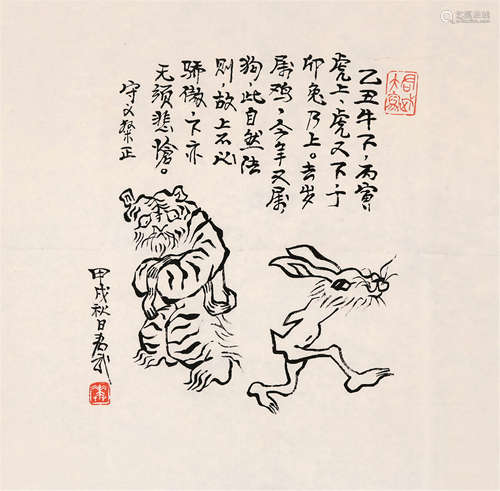 乙丑牛下,丙寅
虎上、虎又下,丁
卯兔乃上。去岁
属鸡,今年又属
狗,此自然法
则,故上不必
骄傲,下亦
无须悲怆。
守文 正
甲戌秋日